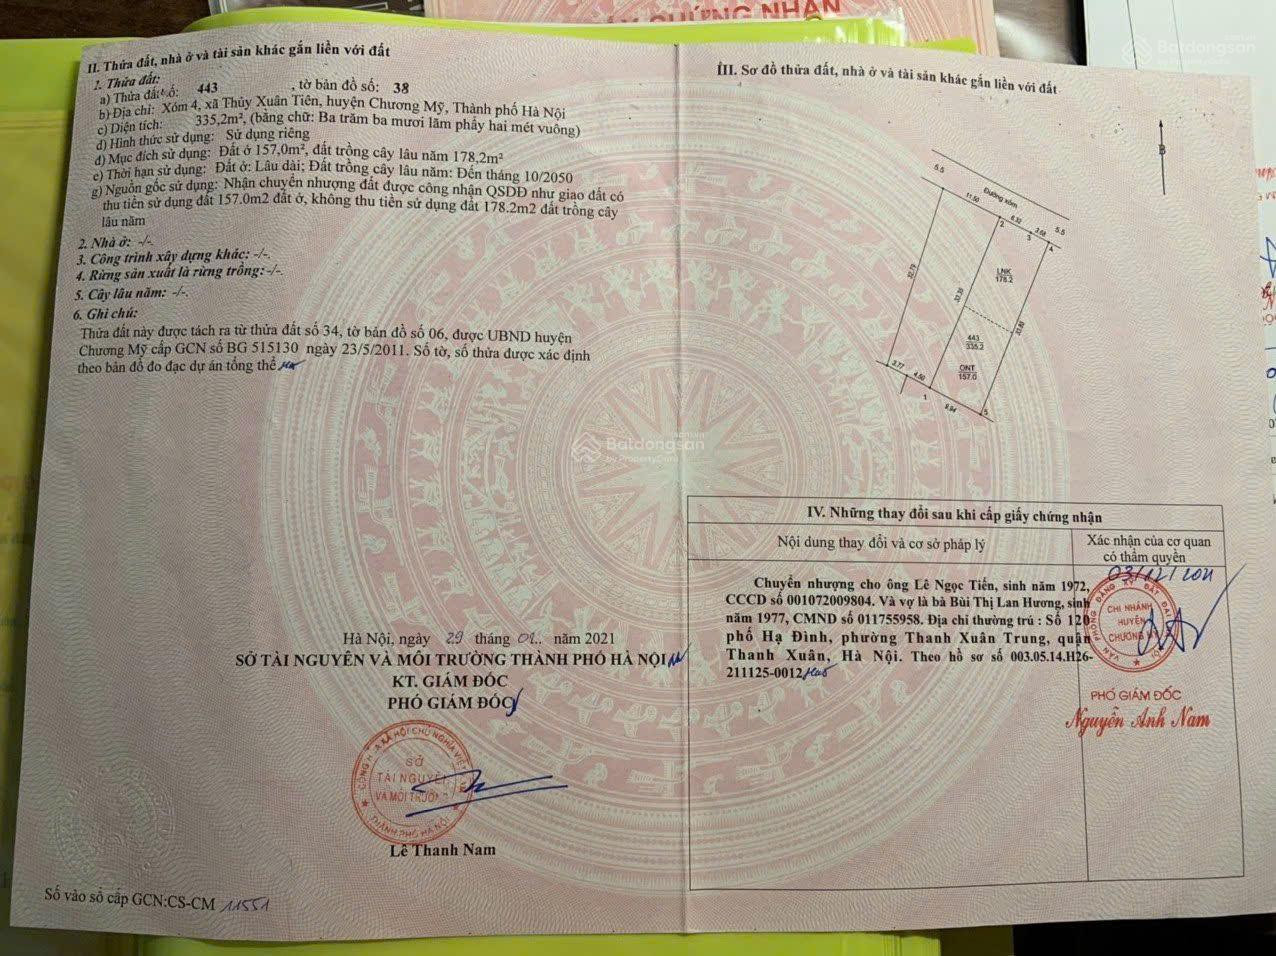 GIẤY CHỨNG NHẬN
II. Thửa đất, nhà ở và tài sản khác gắn liền với đất
1. Thửa đất:
a) Thửa đất số: 443 , tờ bản đồ số: 38
b) Địa chỉ: Xóm 4, xã Thủy Xuân Tiên, huyện Chương Mỹ, Thành phố Hà Nội
c) Diện tích: 335,2m², (bằng chữ: Ba trăm ba mươi lăm phẩy hai mét vuông)
d) Hình thức sử dụng: Sử dụng riêng
đ) Mục đích sử dụng: Đất ở 157,0m², đất trồng cây lâu năm 178,2m²
e) Thời hạn sử dụng: Đất ở: Lâu dài; Đất trồng cây lâu năm: Đến tháng 10/2050
g) Nguồn gốc sử dụng: Nhận chuyển nhượng đất được công nhận QSDĐ như giao đất có
thu tiền sử dụng đất 157.0m2 đất ở, không thu tiền sử dụng đất 178.2m2 đất trồng cây
lâu năm
2. Nhà ở: -/-.
3. Công trình xây dựng khác: -/-.
4. Rừng sản xuất là rừng trồng:-/-.
5. Cây lâu năm: -/-.
6. Ghi chú:
Thửa đất này được tách ra từ thửa đất số 34, tờ bản đồ số 06, được UBND huyện
Chương Mỹ cấp GCN số BG 515130 ngày 23/5/2011. Số tờ, số thửa được xác định
theo bản đồ đo đạc dự án tổng thể
Hà Nội, ngày 29 tháng 01.. năm 2021
SỞ TÀI NGUYÊN VÀ MÔI TRƯỜNG THÀNH PHỐ HÀ NỘI
KT. GIÁM ĐỐC
PHÓ GIÁM ĐỐC
CỘNG HÒA XÃ HỘI CHỦ NGHĨA VIỆT NAM
SỞ
TÀI NGUYÊN
VÀ MÔI TRƯỜNG
THÀNH PHỐ HÀ NỘI
Lê Thanh Nam
Số vào sổ cấp GCN:CS-CM 11551
III. Sơ đồ thửa đất, nhà ở và tài sản khác gắn liền với đất
B
5.5
Đường xóm
11.50
6.32
3.68
5.5
2
3
4
LNK
178.2
32.79
33.35
33.88
443
335.2
ONT
157.0
3.77
4.50
1
9.94
5
Batdongsan
by PropertyGuru
IV. Những thay đổi sau khi cấp giấy chứng nhận
Nội dung thay đổi và cơ sở pháp lý
Xác nhận của cơ quan
có thẩm quyền
Chuyển nhượng cho ông Lê Ngọc Tiến, sinh năm 1972,
CCCD số 001072009804. Và vợ là bà Bùi Thị Lan Hương, sinh
năm 1977, CMND số 011755958. Địa chỉ thường trú : Số 120
phố Hạ Đình, phường Thanh Xuân Trung, quận
Thanh Xuân, Hà Nội. Theo hồ sơ số 003.05.14.H26-
211125-0012
03/12/2021
VĂN PHÒNG ĐĂNG KÝ ĐẤT ĐAI
CHI NHÁNH
HUYỆN
CHƯƠNG MỸ
PHÓ GIÁM ĐỐC
Nguyễn Anh Nam
Batdongsan